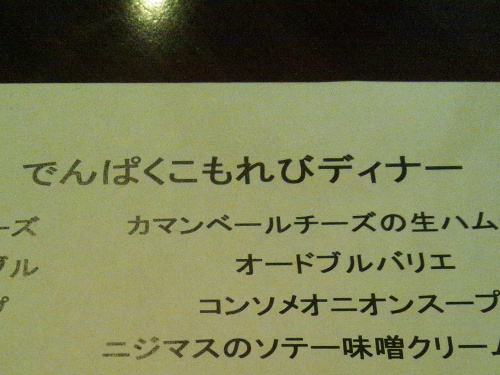 でんぱくこもれびディナー
ーズ　カマンベールチーズの生ハム
ブル　オードブルバリエ
プ　コンソメオニオンスープ
ニジマスのソテー味噌クリーム